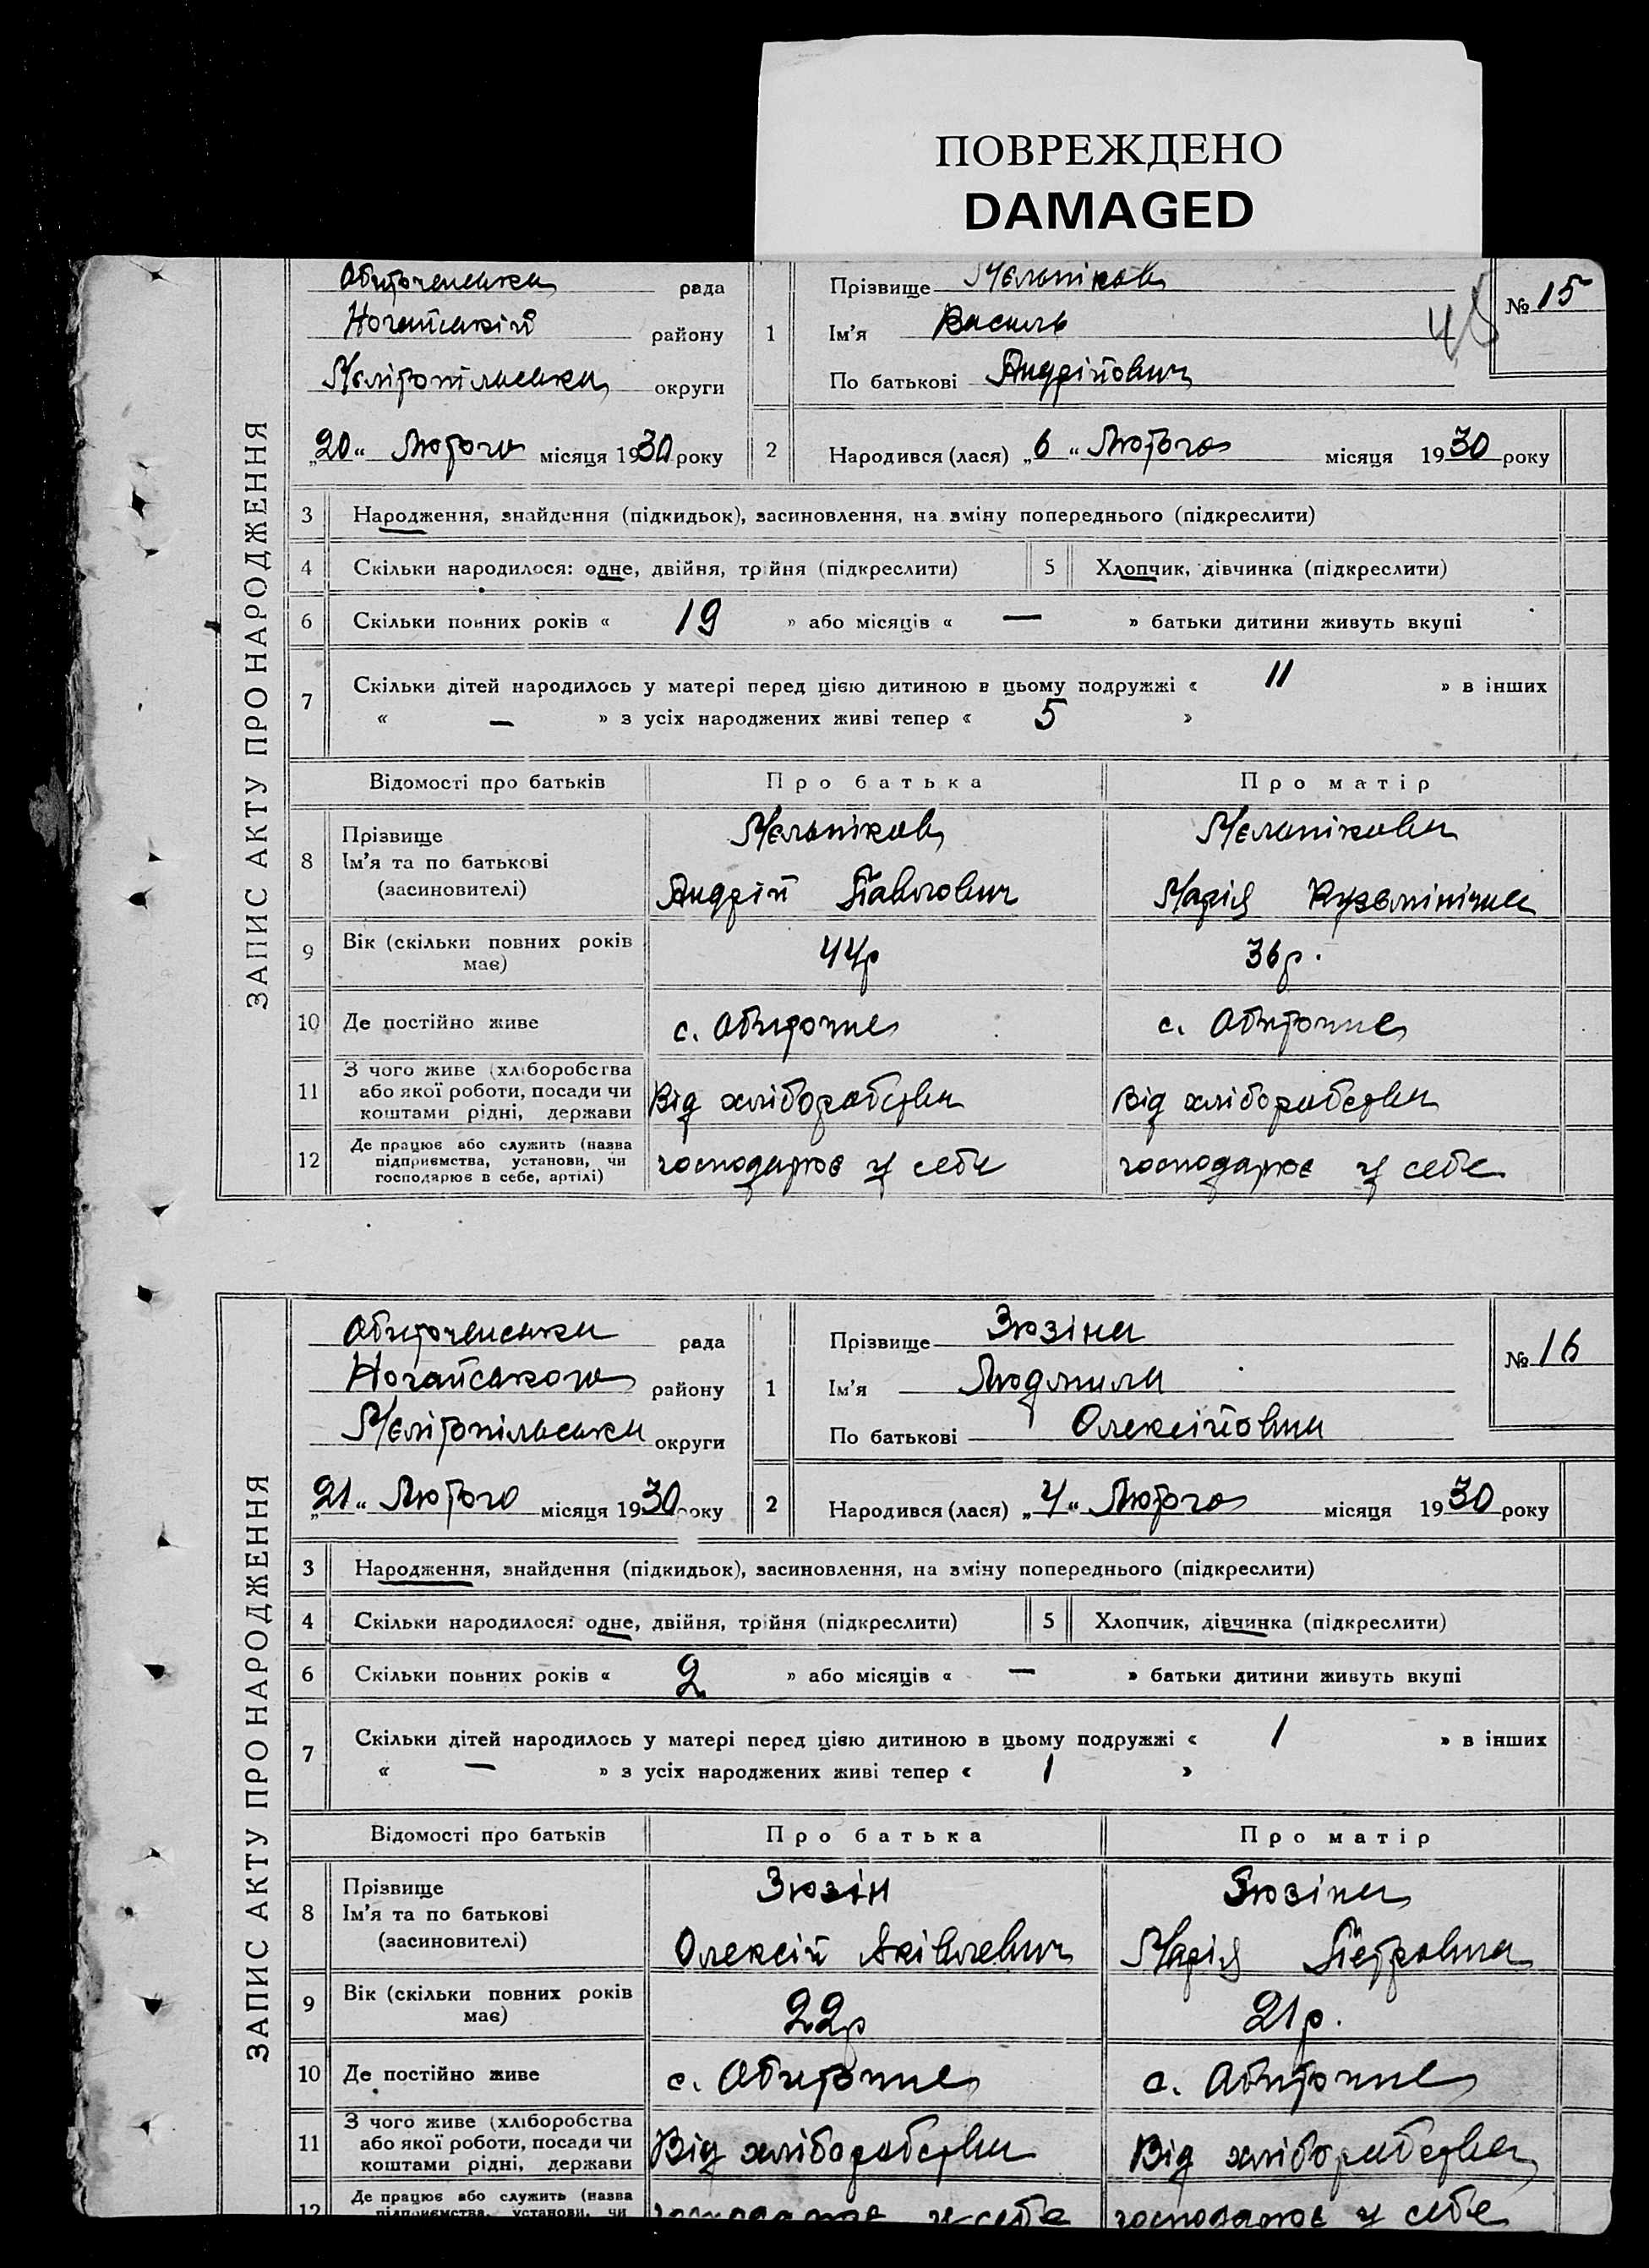 ПОВРЕЖДЕНО
DAMAGED
ЗАПИС АКТУ ПРО НАРОДЖЕННЯ
Обиточенська рада
Ногайський району
Мєлітопільська округи
„20“ Лютого місяця 1930 року
1 Прізвище Мєльніков
Ім'я Василь
По батькові Андрійович
№ 15
2 Народився (лася) „6“ Лютого місяця 1930 року
3 Народження, знайдення (підкидьок), засиновлення, на зміну попереднього (підкреслити)
4 Скільки народилося: одне, двійня, трійня (підкреслити) 5 Хлопчик, дівчинка (підкреслити)
6 Скільки повних років « 19 » або місяців « — » батьки дитини живуть вкупі
7 Скільки дітей народилось у матері перед цією дитиною в цьому подружжі « 11 » в інших
« — » з усіх народжених живі тепер « 5 »
Відомості про батьків Про батька Про матір
8 Прізвище Мєльніков Мєльнікова
Ім'я та по батькові
(засиновителі) Андрій Павлович Марія Кузьмінічна
9 Вік (скільки повних років має) 44р 36р.
10 Де постійно живе с. Обиточне с. Обиточне
11 З чого живе (хліборобства
або якої роботи, посади чи
коштами рідні, держави Від хліборобства Від хліборобства
12 Де працює або служить (назва
підприємства, установи, чи
господарює в себе, артілі) господарює у себе господарює у себе
ЗАПИС АКТУ ПРО НАРОДЖЕННЯ
Обиточенська рада
Ногайського району
Мєлітопільська округи
„21“ Лютого місяця 1930 року
1 Прізвище Зюзіна
Ім'я Людмила
По батькові Олексійовна
№ 16
2 Народився (лася) „4“ Лютого місяця 1930 року
3 Народження, знайдення (підкидьок), засиновлення, на зміну попереднього (підкреслити)
4 Скільки народилося: одне, двійня, трійня (підкреслити) 5 Хлопчик, дівчинка (підкреслити)
6 Скільки повних років « 2 » або місяців « — » батьки дитини живуть вкупі
7 Скільки дітей народилось у матері перед цією дитиною в цьому подружжі « 1 » в інших
« — » з усіх народжених живі тепер « 1 »
Відомості про батьків Про батька Про матір
8 Прізвище Зюзін Зюзіна
Ім'я та по батькові
(засиновителі) Олексій Яківлевич Марія Петровна
9 Вік (скільки повних років має) 22р 21р.
10 Де постійно живе с. Обиточне с. Обиточне
11 З чого живе (хліборобства
або якої роботи, посади чи
коштами рідні, держави Від хліборобства Від хліборобства
12 Де працює або служить (назва
підприємства, установи, чи господарює у себе господарює у себе